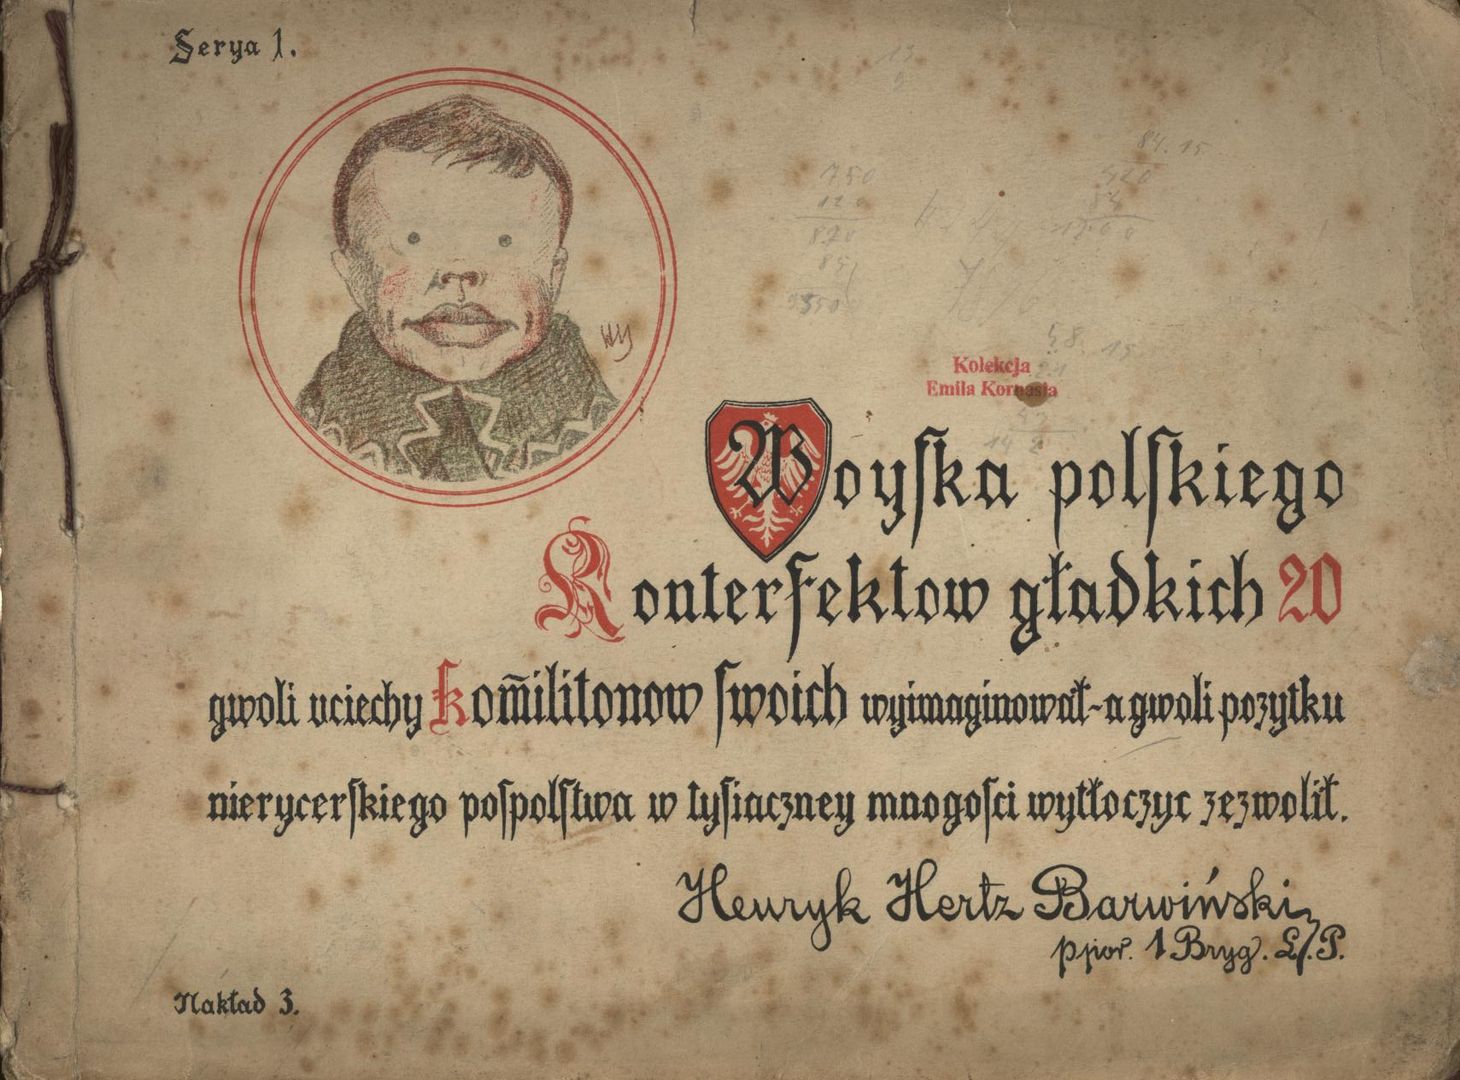 Serya 1.
Kolekcja
Emila Kornasia
Woyska polskiego
Konterfektow gładkich 20
gwoli uciechy kom̃ilitonow swoich wyimaginował-a gwoli pozytku
nierycerskiego pospolstwa w tysiaczney mnogosci wytłoczyc zezwolił.
Henryk Hertz Barwiński
ppior. 1 Bryg. L. P.
Nakład 3.
750
120
870